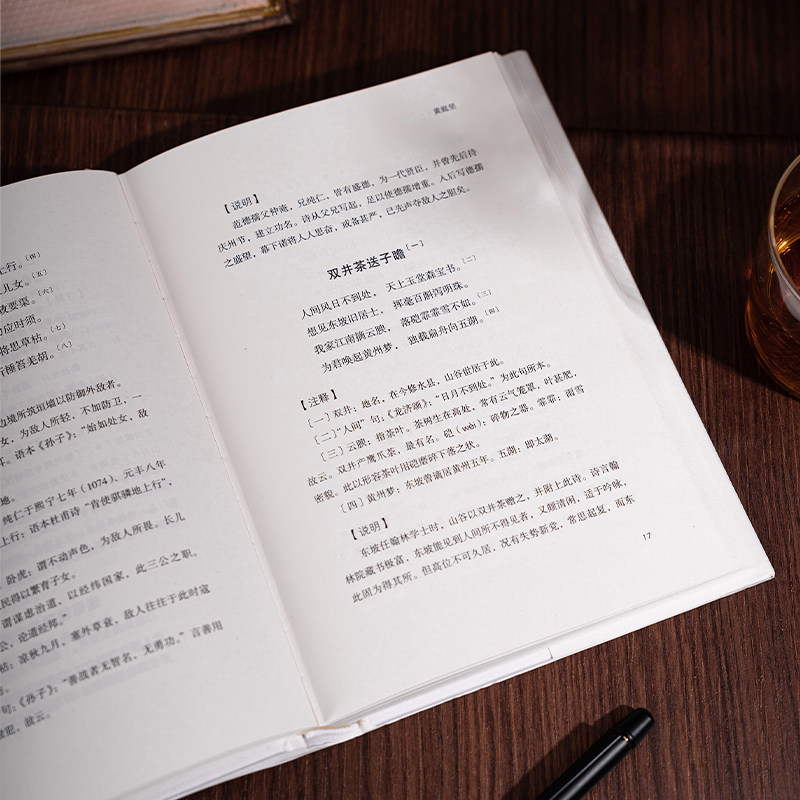 上行。〔四〕
儿女。〔五〕
敌要渠。〔六〕
应时须。
将思草枯。〔七〕
折棰笞羌胡。〔八〕
边境所筑垣墙以防御外敌者。
女，为敌人所轻，不加防卫，一
语本《孙子》：“始如处女，敌
地。
纯仁于熙宁七年（1074）、元丰八年
上行：语本杜甫诗“肯使骐驎地上行”，
卧虎：谓不动声色，为敌人所畏。长儿
民得以繁育子女。
谓谋虑治道，以经纬国家，此三公之职。
公，论道经邦。”
枯：凉秋九月，塞外草衰，敌人往往于此时寇
句：《孙子》：“善战者无智名，无勇功。”言善用
故云。
黄庭坚
【说明】
范德孺父仲淹，兄纯仁，皆有盛德，为一代贤臣，并曾先后持
庆州节，建立功名。诗从父兄写起，足以使德孺增重。入后写德孺
之盛望，幕下诸将人人思奋，戒备甚严，已先声夺敌人之胆矣。
双井茶送子瞻〔一〕
人间风日不到处，天上玉堂森宝书。〔二〕
想见东坡旧居士，挥毫百斛泻明珠。
我家江南摘云腴，落硙霏霏雪不如。〔三〕
为君唤起黄州梦，独载扁舟向五湖。〔四〕
【注释】
〔一〕双井：地名，在今修水县，山谷世居于此。
〔二〕“人间”句：《龙济颂》：“日月不到处。”为此句所本。
〔三〕云腴：指茶叶。茶树生在高处，常有云气笼罩，叶甚肥，
故云。双井产鹰爪茶，最有名。硙（wèi）：碎物之器。霏霏：雨雪
密貌。此以形容茶叶用硙磨碎下落之状。
〔四〕黄州梦：东坡曾谪居黄州五年。五湖：即太湖。
【说明】
东坡任翰林学士时，山谷以双井茶赠之，并附上此诗。诗言翰
林院藏书极富，东坡能见到人间所不得见者，又颇清闲，适于吟咏，
此固为得其所。但高位不可久居，况有失势新党，常思起复，而东
17